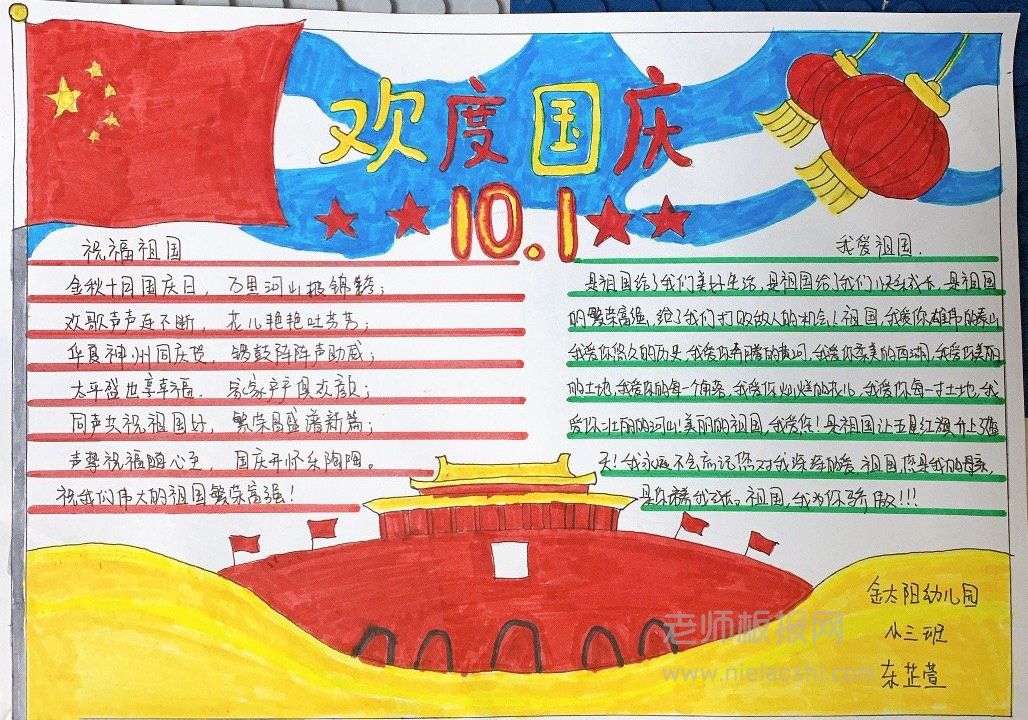 欢度国庆
10.1
祝福祖国
金秋十月国庆日，万里河山披锦绣；
欢歌声声连不断，花儿艳艳吐芬芳；
华夏神州同庆贺，锣鼓阵阵声助威；
太平盛世享幸福，家家户户具欢颜；
同声共祝祖国好，繁荣昌盛谱新篇；
声声祝福随心至，国庆开怀乐陶陶。
祝我们伟大的祖国繁荣富强！
我爱祖国.
是祖国给了我们美好生活，是祖国给了我们快乐成长，是祖国
的繁荣富强，给了我们打败敌人的机会！祖国，我爱你雄伟的泰山
我爱你悠久的历史，我爱你奔腾的黄河，我爱你柔美的西湖，我爱你美丽
的土地，我爱你的每一个角落，我爱你灿烂的文化，我爱你每一寸土地，我
爱你壮丽的河山！美丽的祖国，我爱你！是祖国让五星红旗升上了蓝
天！我永远不会忘记您对我深深的爱 祖国，您是我们的母亲，
是你 我 。祖国，我为你骄傲！！！
金太阳幼儿园
小三班
东芷萱
老师板报网
www.nielaoshi.com